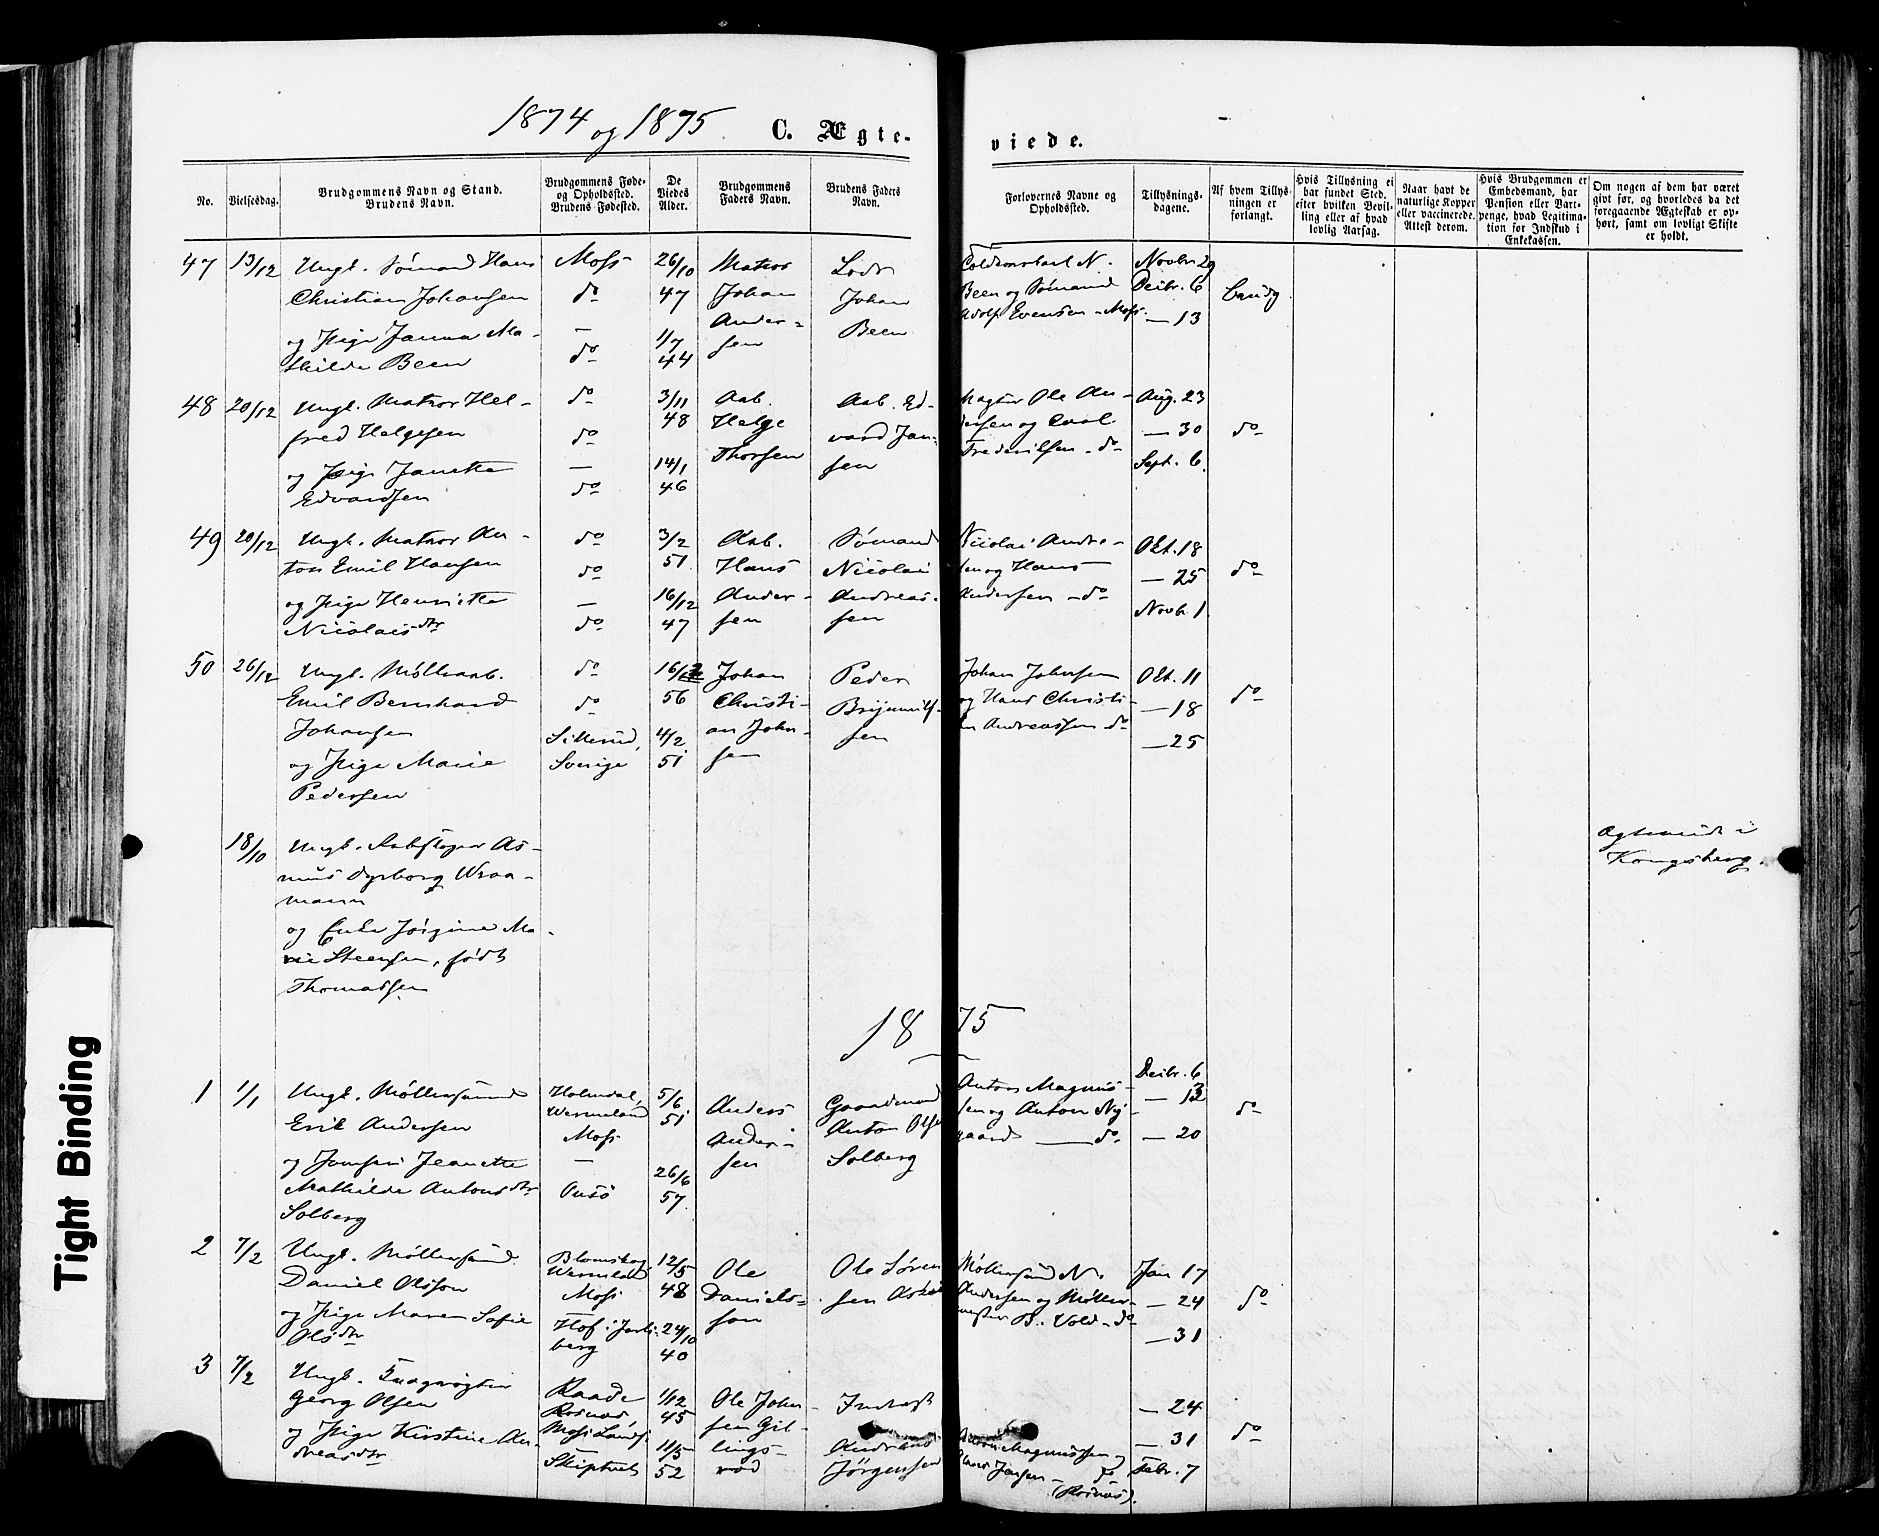 1874 og 1875
C. Ægte-
viede.
No.
Vielsesdag.
Brudgommens Navn og Stand.
Brudens Navn.
Brudgommens Føde-
og Opholdssted.
Brudens Fødested.
De
Viedes
Alder.
Brudgommens
Faders Navn.
Brudens Faders
Navn.
Forlovernes Navne og
Opholdssted.
Tillysnings-
dagene.
Af hvem Tillys-
ningen er
forlangt.
Hvis Tillysning ei
har fundet Sted,
efter hvilken Bevil-
ling eller af hvad
lovlig Aarsag.
Naar havt de
naturlige Kopper
eller vaccinerede.
Attest derom.
Hvis Brudgommen er
Embedsmand, har
Pension eller Vart-
penge, hvad Legitima-
tion for Indskud i
Enkekassen.
Om nogen af dem har været
gift før, og hvorledes da det
foregaaende Ægteskab er op-
hørt, samt om lovligt Skifte
er holdt.
47 13/12
Ungk. Sømand Hans
Christian Johansen
og Pige Janna Ma-
thilde Been
Moss
do
—
do
26/10
47
1/7
44
Matros
Johan
Ander-
sen
Lods
Johan
Been
N.
Been og Sømand
Adolf Evensen - Moss
Novbr. 29
Decbr. 6
— 13
Brudg.
48 20/12
Ungk. Matros Hel-
fred Helgesen
og Pige Janette
Edvardsen
do
do
—
do
3/11
48
14/1
46
Aab.
Helge
Thorsen
Aab. Ed-
vard Jan-
sen
Ole An-
dersen og Carl
Frederiksen - do
Aug. 23
— 30
Sept. 6.
do
49 20/12
Ungk. Matros An-
ton Emil Hansen
og Pige Henriette
Nicolaisdtr
do
do
—
do
3/2
51.
16/12
47
Aab.
Hans
Ander-
sen
Sømand
Nicolai
Andreas-
sen
Nicolai Andre-
sen og Hans
Andersen - do
Okt. 18
— 25
Novbr. 1
do
50 26/12
Ungk. Møllearb.
Emil Bernhard
Johansen
og Pige Marie
Pedersen
do
do
Sillerud,
Sverige
16/12
56
4/2
51
Johan
Christi-
an Johan-
sen
Peder
Brynnilf-
sen
Johan Johnsen
og Hans Christi-
an Andreassen do
Okt. 11
— 18
— 25
do
18/10
Ungk. As-
mus Dyrborg Wraa-
mann
og Enke Jørgine Ma-
rie Steensen, født
Thomassen
Ægteviede i
Kongsberg.
1875
1 1/1
Ungk. Møllersvend
Erik Andersen
og Jomfru Jeanette
Mathilde Antonsdtr
Solberg
Holmdal,
Wermeland
Moss
—
Onsö
5/6
51
26/6
57
Anders
Ander-
sen
Gaardmand
Anton Olsen
Solberg
Anton Magnus-
sen og Anton Ny-
gaard — do
Decbr. 6
— 13
— 20
do
2 7/2
Ungk. Møllersvend
Daniel Olsson
og Pige Maren Sofie
Olsdtr
Blomskog
Wermland
Moss
Hof i Jarls-
berg
12/5
48
24/10
40
Ole
Daniels-
son
Ole Søren-
sen
Møllersvend N.
Andersen og Møller-
mester B. Vold - do
Jan 17
— 24
— 31
do
3 7/2
Ungk.
Georg Olsen
og Pige Kirstine An-
dreasdtr
Raade
Moss Lands.
Skiptvet
1/12
45
11/5
52
Ole John-
sen Gil-
lings-
rød
Inderst
Andreas
Jørgensen
Anton Magnussen og
Hans Jensen —
— 24
— 31
Febr. 7
do
Tight Binding